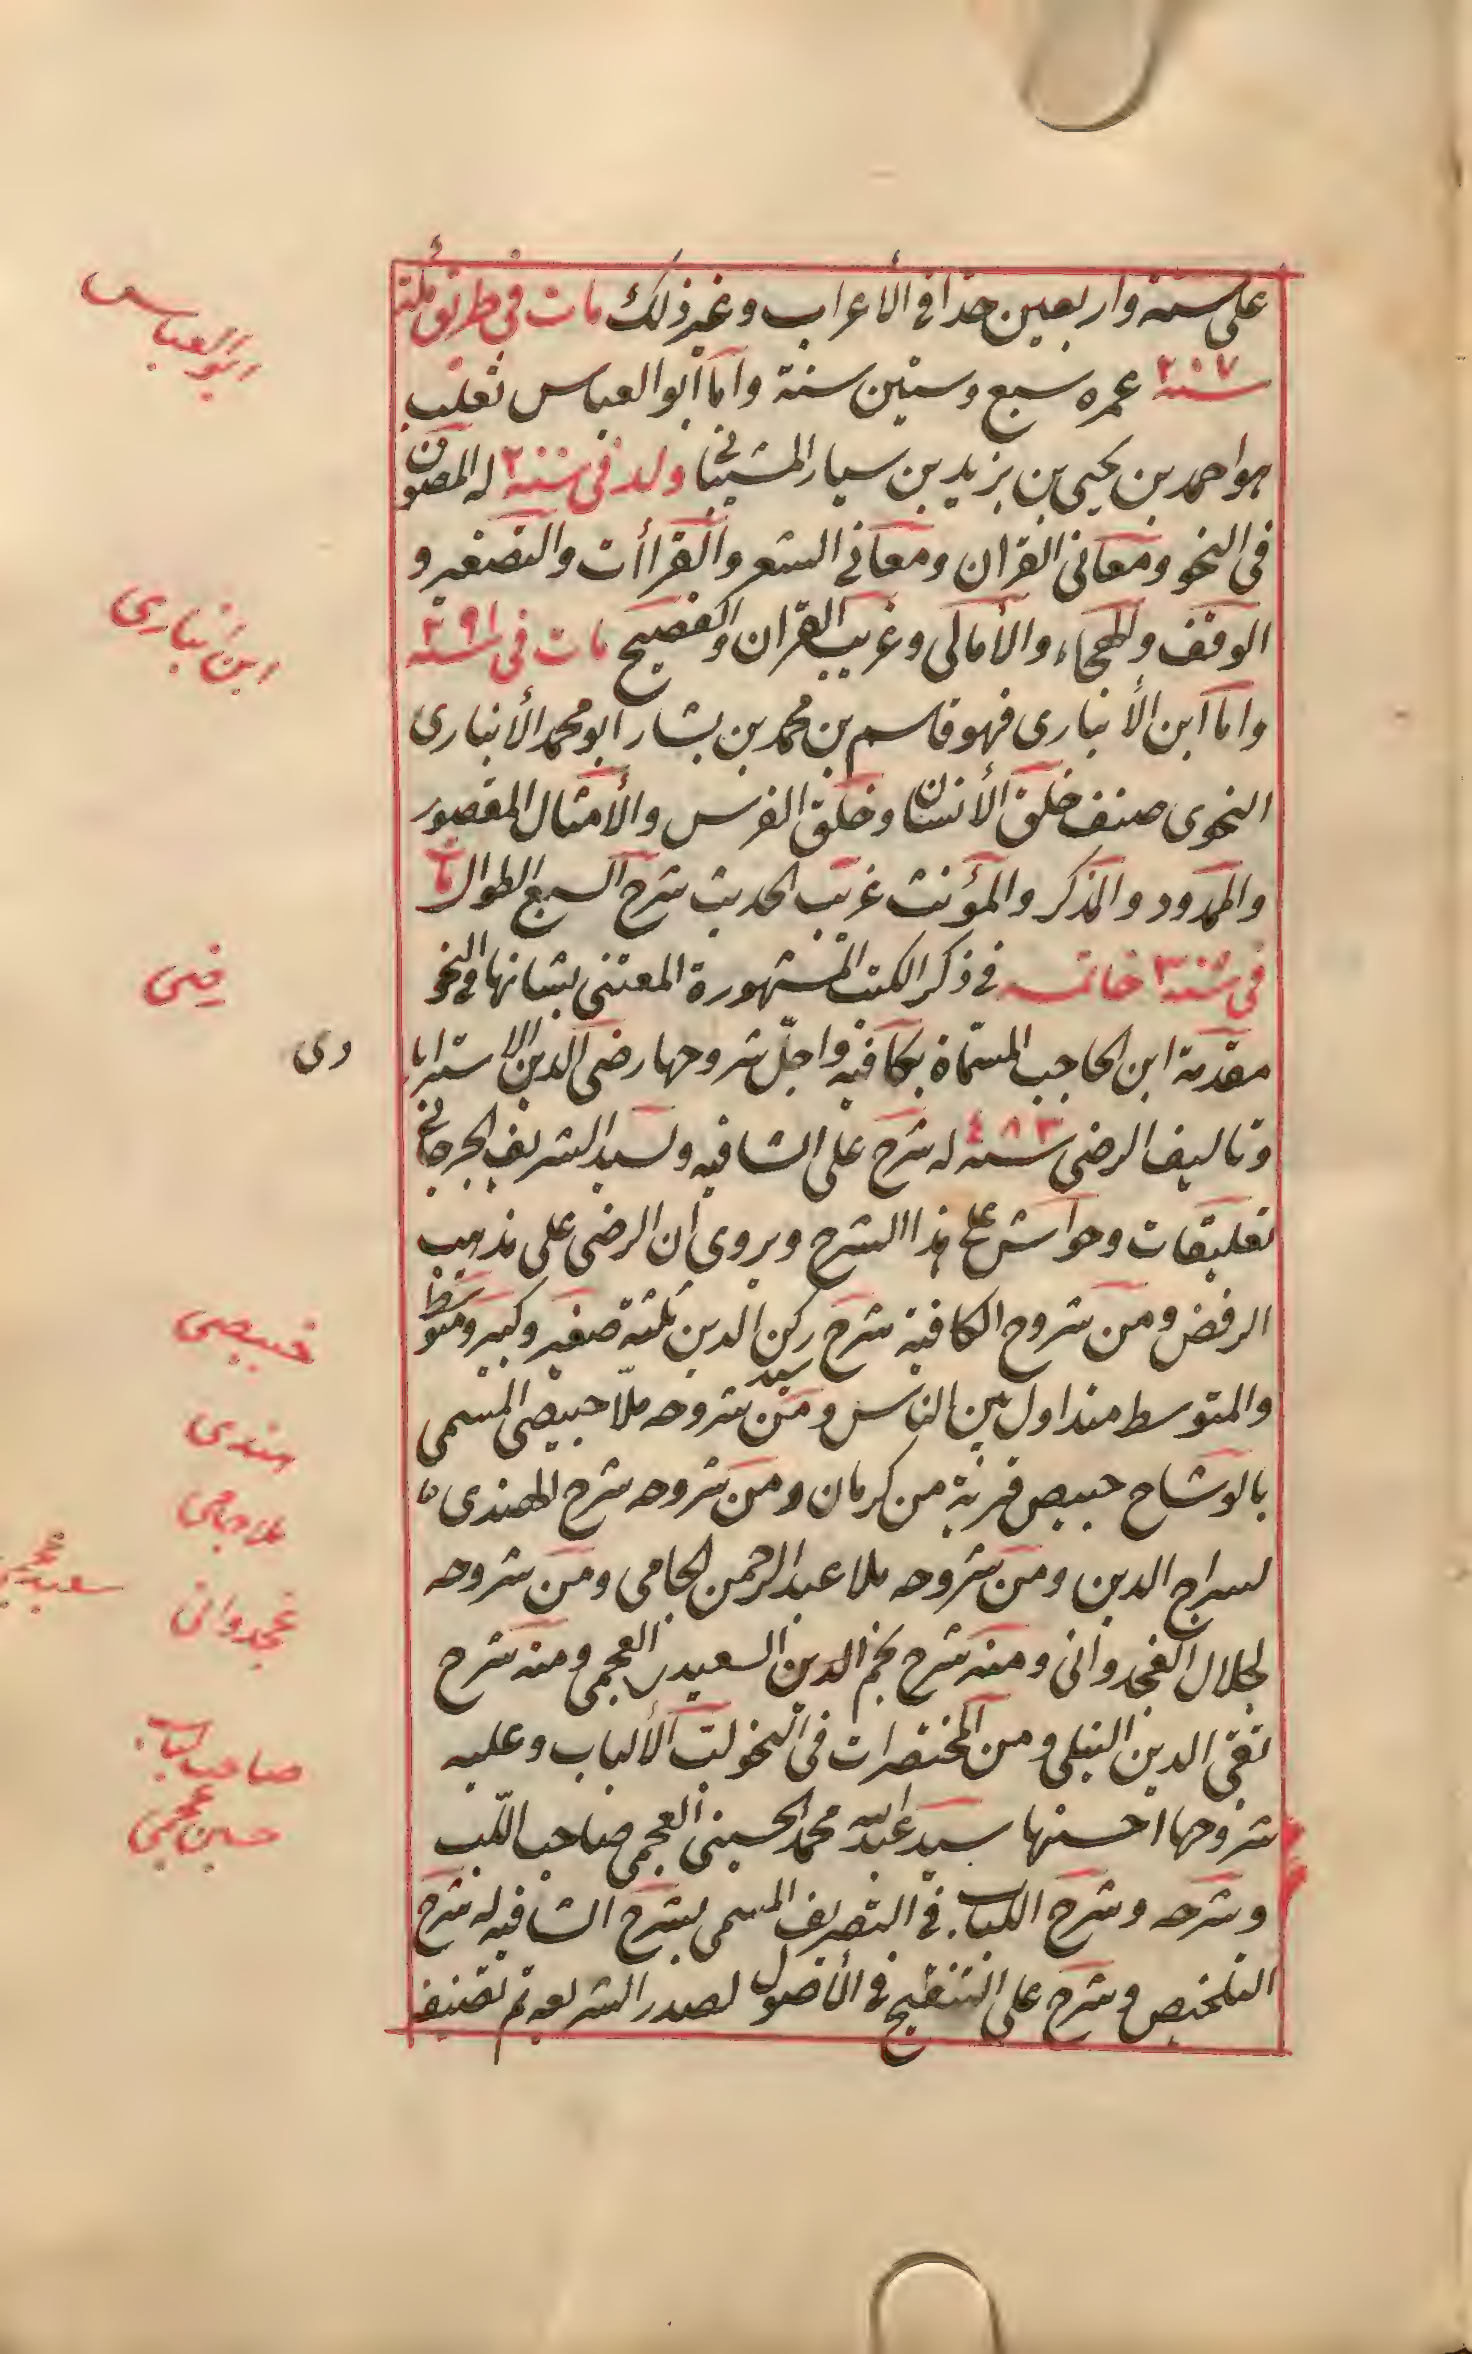 على ستة واربعين حدا في الأعراب وغير ذلك مات في طريق مكة
سنة ٢٠٧ عمره سبع وستين سنة واما أبو العباس ثعلب
هو احمد بن يحيى بن يزيد بن سيار الشيبانى ولد في سنة ٢٠٠ له المصون
في النحو ومعانى القران ومعاني الشعر والقراأت والتصغير و
الوقف والهجاء والأمالى وغريب القران والفصيح مات في سنة ٢٩١
واما ابن الأنبارى فهو قاسم بن محمد بن بشار ابو محمد الأنبارى
النحوى صنف خلق الأنسان وخلق الفرس والأمثال المقصور
والممدود والمذكر والمؤنث غريب الحديث شرح السبع الطوال مات
في سنة ٣٠٠ خاتمه في ذكر الكتب المشهورة المعتنى بشانها في النحو
مقدمة ابن الحاجب المسمّاة بكافيه واجلّ شروحها رضى الدين الاسترابا
دى
وتاليف الرضى سنة ٤٨٣ له شرح على الشافيه ولسيد الشريف الجرجانى
تعليقات وحواش على هذا الشرح ويروى أن الرضى على مذهب
الرفض ومن شروح الكافية شرح سيد ركن الدين ثلثة صغير وكبير ومتوسط
والمتوسط متداول بين الناس ومن شروحه ملّا خبيصى المسمى
بالوشاح خبيص قرية من كرمان ومن شروحه شرح الهندى
لسراج الدين ومن شروحه ملا عبد الرحمن الجامى ومن شروحه
لجلال الغجدوانى ومنه شرح نجم الدين السعيدى العجمى ومنه شرح
تقى الدين النيلى ومن المختصرات في النحو لبّ الألباب وعليه
شروحها احسنها سيد عبد الله محمد الحسينى العجمى صاحب اللب
وشرحه وشرح اللباب في التصريف المسمى بشرح الشافيه له شرح
التلخيص وشرح على التنقيح في الأصول لصدر الشريعه ثم تصنيف
ابو العباس
ابن انبارى
رضى
خبيصى
هندى
ملا جامى
غجدوانى
صاحب لباب
حسين عجمى